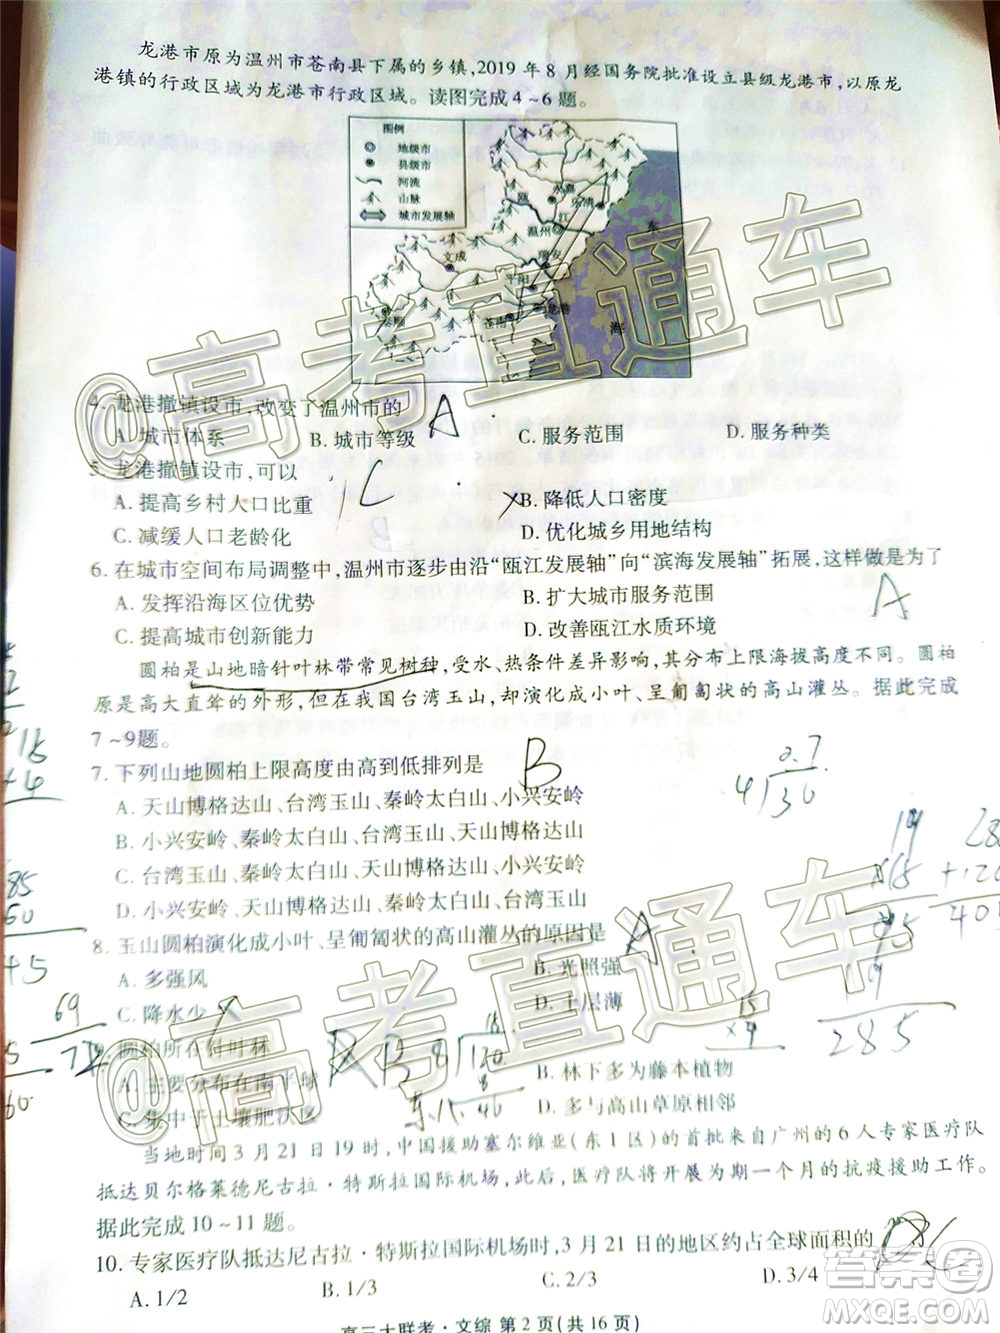 龙港市原为温州市苍南县下属的乡镇,2019年8月经国务院批准设立县级龙港市,以原龙
港镇的行政区域为龙港市行政区域。读图完成4~6题。
图例
地级市
县级市
河流
山脉
城市发展轴
永嘉
瓯
乐清
江
温州
东
文成
瑞安
平阳
龙港
苍南
海
4. 龙港撤镇设市,改变了温州市的 A
A. 城市体系 B. 城市等级 C. 服务范围 D. 服务种类
5. 龙港撤镇设市,可以 C
A. 提高乡村人口比重 B. 降低人口密度
C. 减缓人口老龄化 D. 优化城乡用地结构
6. 在城市空间布局调整中,温州市逐步由沿“瓯江发展轴”向“滨海发展轴”拓展,这样做是为了
A. 发挥沿海区位优势 B. 扩大城市服务范围 A
C. 提高城市创新能力 D. 改善瓯江水质环境
圆柏是山地暗针叶林带常见树种,受水、热条件差异影响,其分布上限海拔高度不同。圆柏
原是高大直耸的外形,但在我国台湾玉山,却演化成小叶、呈匍匐状的高山灌丛。据此完成
7~9题。
7. 下列山地圆柏上限高度由高到低排列是 B
A. 天山博格达山、台湾玉山、秦岭太白山、小兴安岭
B. 小兴安岭、秦岭太白山、台湾玉山、天山博格达山
C. 台湾玉山、秦岭太白山、天山博格达山、小兴安岭
D. 小兴安岭、天山博格达山、秦岭太白山、台湾玉山
8. 玉山圆柏演化成小叶、呈匍匐状的高山灌丛的原因是 A
A. 多强风 B. 光照强
C. 降水少 D. 土层薄
9. 圆柏所在针叶林
A. 主要分布在南半球 B. 林下多为藤本植物
C. 集中于土壤肥沃区 D. 多与高山草原相邻
当地时间3月21日19时,中国援助塞尔维亚(东1区)的首批来自广州的6人专家医疗队
抵达贝尔格莱德尼古拉·特斯拉国际机场,此后,医疗队将开展为期一个月的抗疫援助工作。
据此完成10~11题。
10. 专家医疗队抵达尼古拉·特斯拉国际机场时,3月21日的地区约占全球面积的
A. 1/2 B. 1/3 C. 2/3 D. 3/4
高三大联考·文综 第2页(共16页)
@高考直通车
@高考直通车
答案圈
MXQE.COM